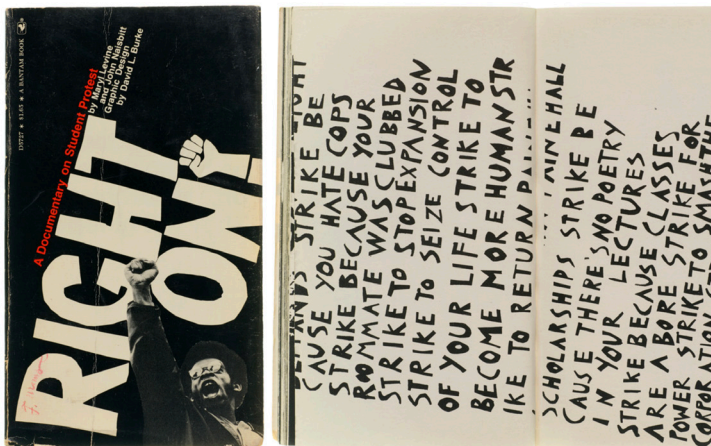 D5727 ★ $1.65 ★ A BANTAM BOOK
A Documentary on Student Protest
by Mary Levine
and John Naisbitt
Graphic Design
by David L. Burke
RIGHT
ON!
STRIKE BE
CAUSE YOU HATE COPS
STRIKE BECAUSE YOUR
ROOMMATE WAS CLUBBED
STRIKE TO STOP EXPANSION
STRIKE TO SEIZE CONTROL
OF YOUR LIFE STRIKE TO
BECOME MORE HUMAN STR
IKE TO RETURN
HALL
SCHOLARSHIPS STRIKE BE
CAUSE THERE'S NO POETRY
IN YOUR LECTURES
STRIKE BECAUSE CLASSES
ARE A BORE STRIKE FOR
POWER STRIKE TO SMASH THE